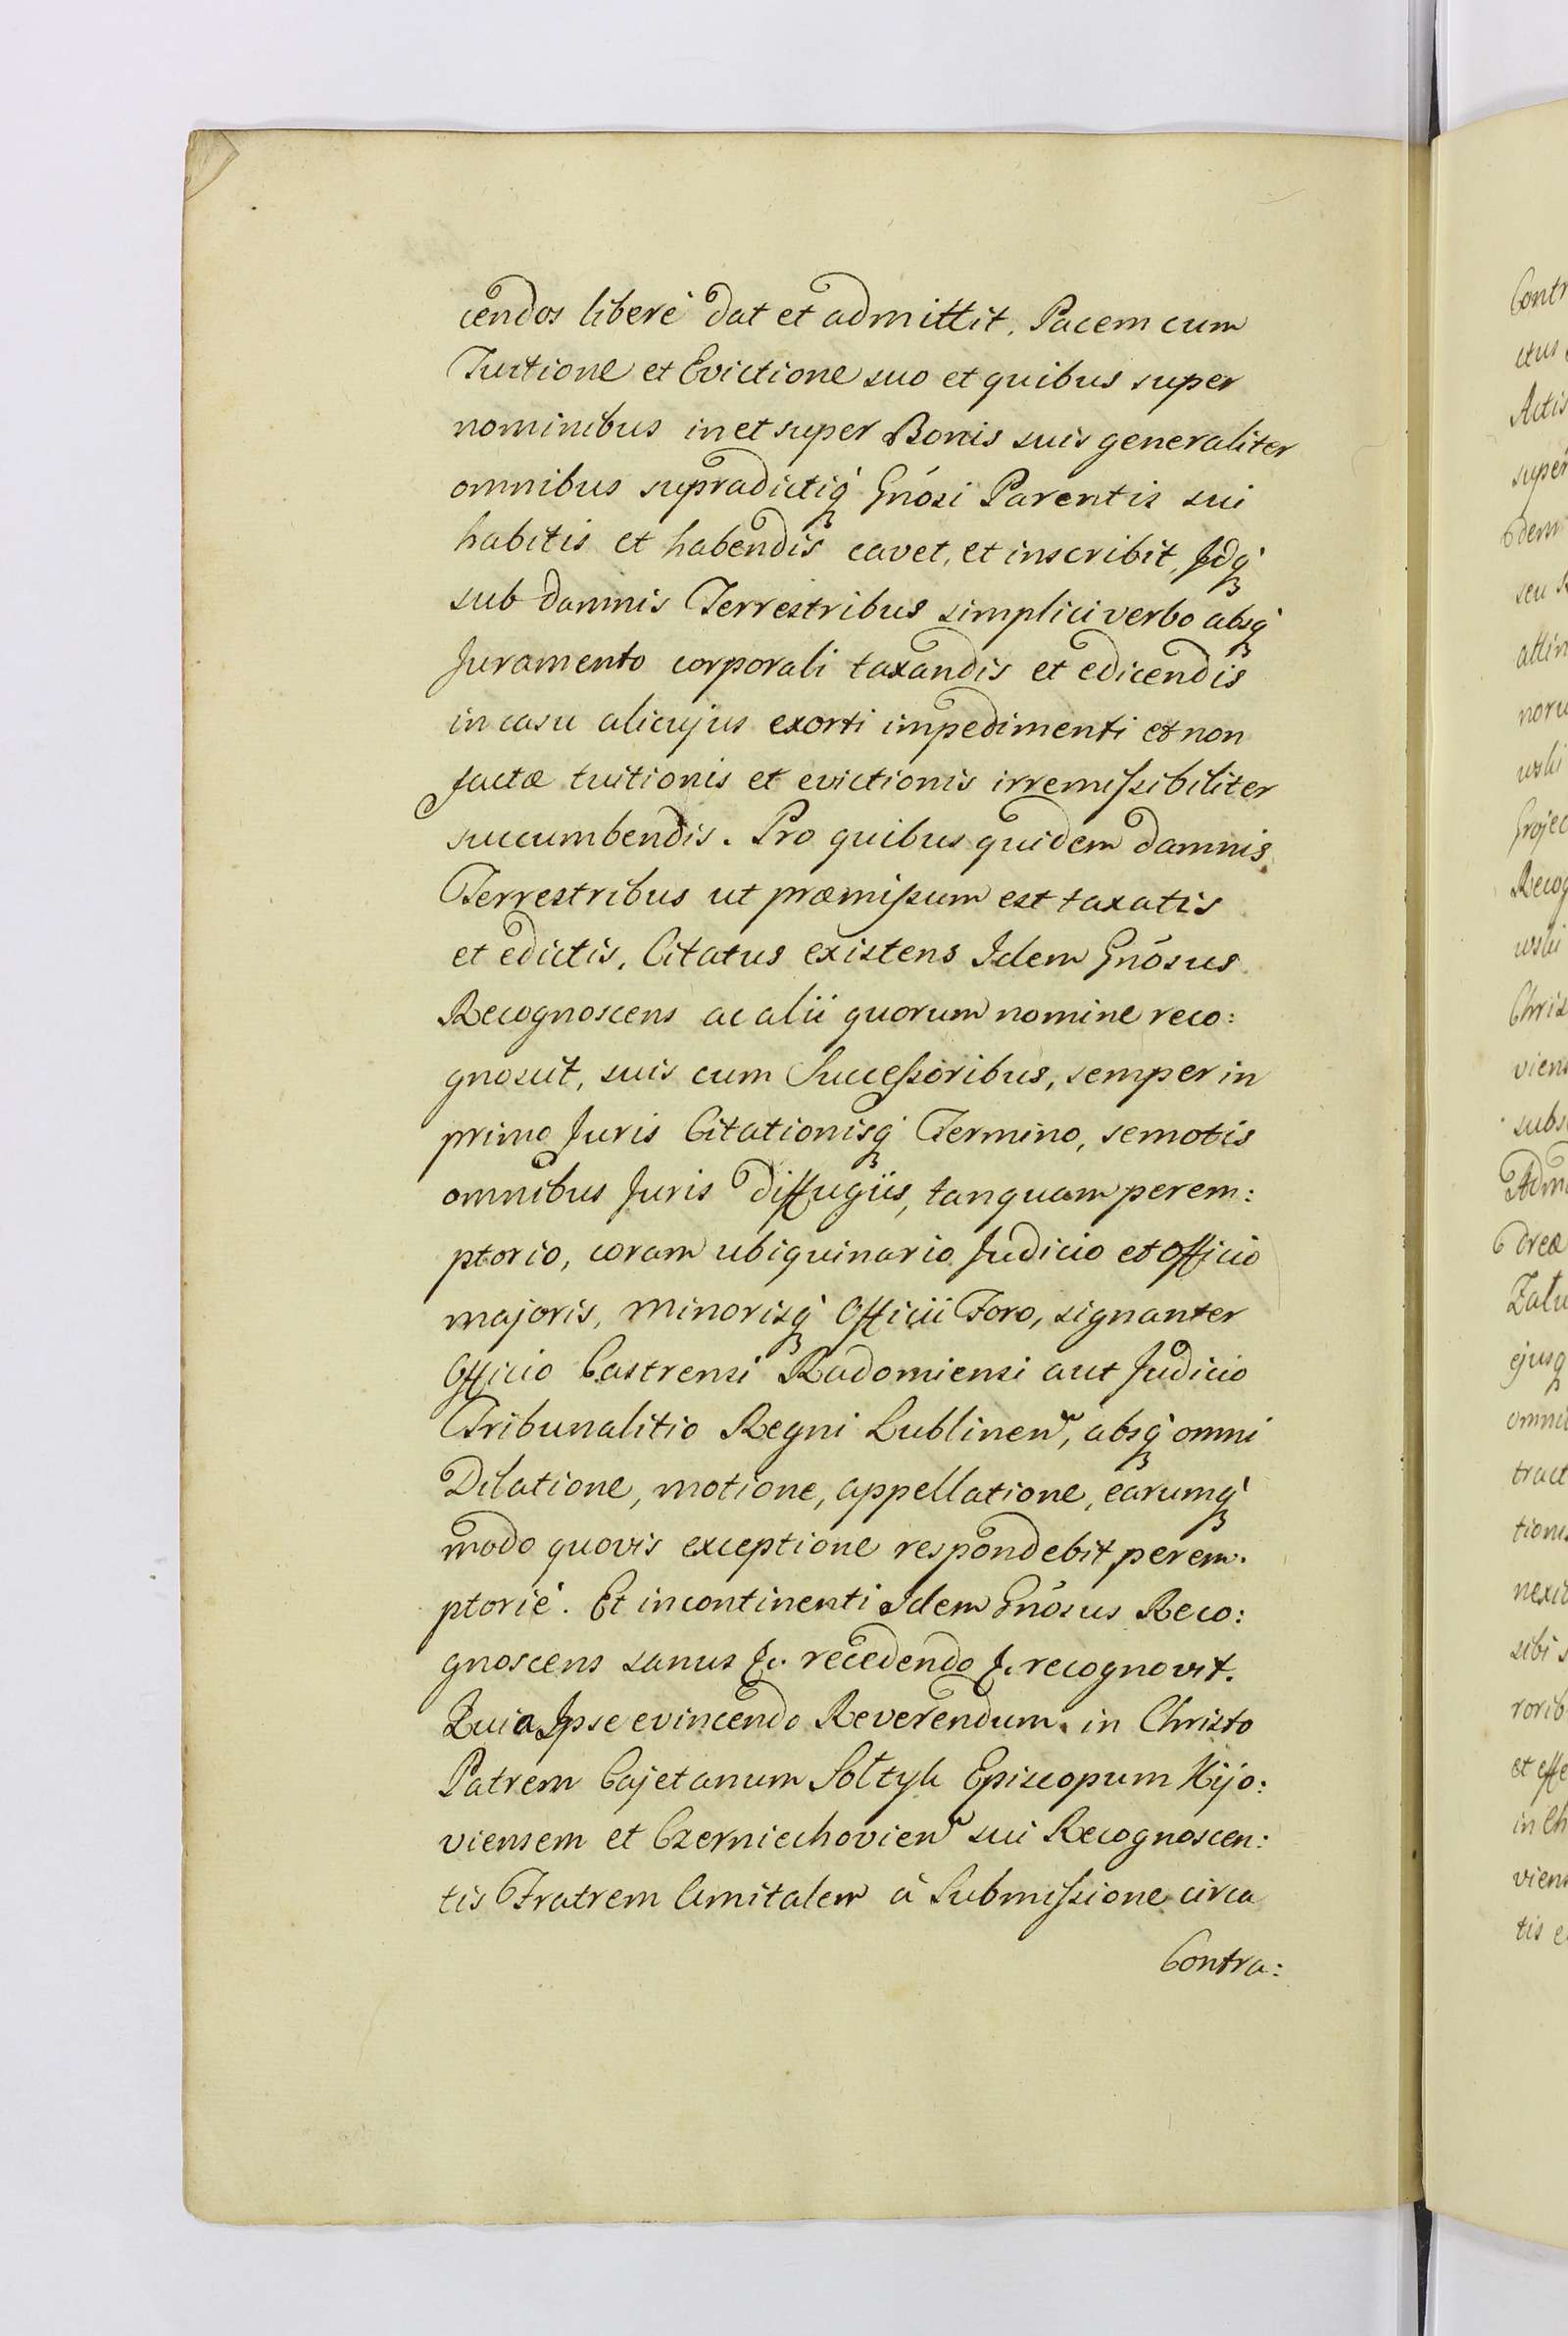 cendos liberè dat et admittit. Pacem cum
Tuitione et Evictione suo et quibus super
nominibus in et super Bonis suis generaliter
omnibus supradictiq́ Gnósi Parentis sui
habitis et habendis cavet, et inscribit, Jdq́
sub damnis Terrestribus simplici verbo absq́
Juramento corporali taxandis et edicendis
in casu alicujus exorti impedimenti et non
factæ tuitionis et evictionis irremissibiliter
succumbendis. Pro quibus quidem damnis
Terrestribus ut præmissum est taxatis
et edictis, Citatus existens Idem Gnósus
Recognoscens ac alii quorum nomine reco:
gnoscit, suis cum Successoribus, semper in
primo Juris Citationisq́ Termino, semotis
omnibus Juris diffugiis, tanquam perem:
ptorio, coram ubiquinario Judicio et Officio
majoris, minorisq́ Officii Foro, signanter
Officio Castrensi Radomiensi aut Judicio
Tribunalitio Regni Lublinen, absq́ omni
Dilatione, motione, appellatione, earumq́
modo quovis exceptione respondebit perem.
ptoriè. Et incontinenti Idem Gnósus Reco:
gnoscens sanus &. recedendo &. recognovit.
Quia Ipse evincendo Reverendum in Christo
Patrem Cajetanum Sołtyk Episcopum Kijo:
viensem et Czerniechovien sui Recognoscen:
tis Fratrem Amitalem à Submissione circa
Contra: